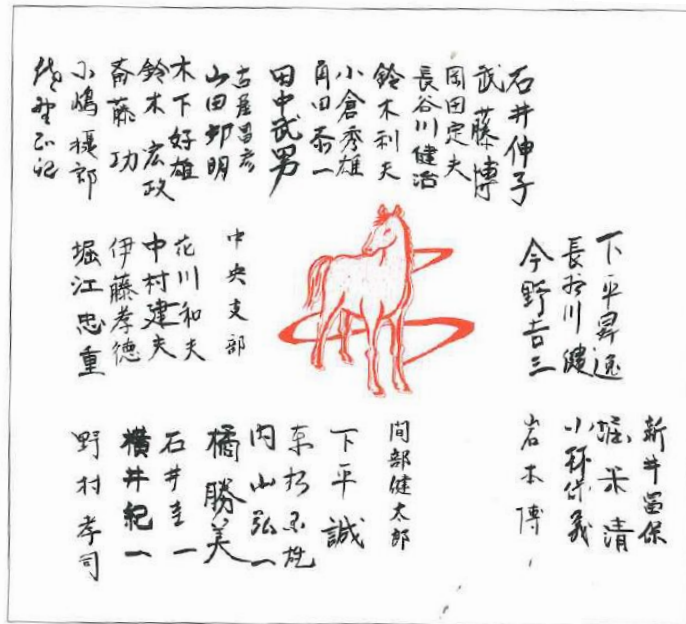 石井伸子
武藤博
岡田定夫
長谷川健治
鈴木利夫
小倉秀雄
角田泰一
田中武男
古屋昌彦
山田邦明
木下好雄
鈴木宏政
斎藤功
小嶋
下平昇逸
長谷川健
今野吉三
中央支部
花川和夫
中村建夫
伊藤孝徳
堀江忠重
新井留保
堀米清
小林保義
岩本博
間部健太郎
下平誠
内山弘一
橘勝美
石井圭一
横井紀一
野村孝司